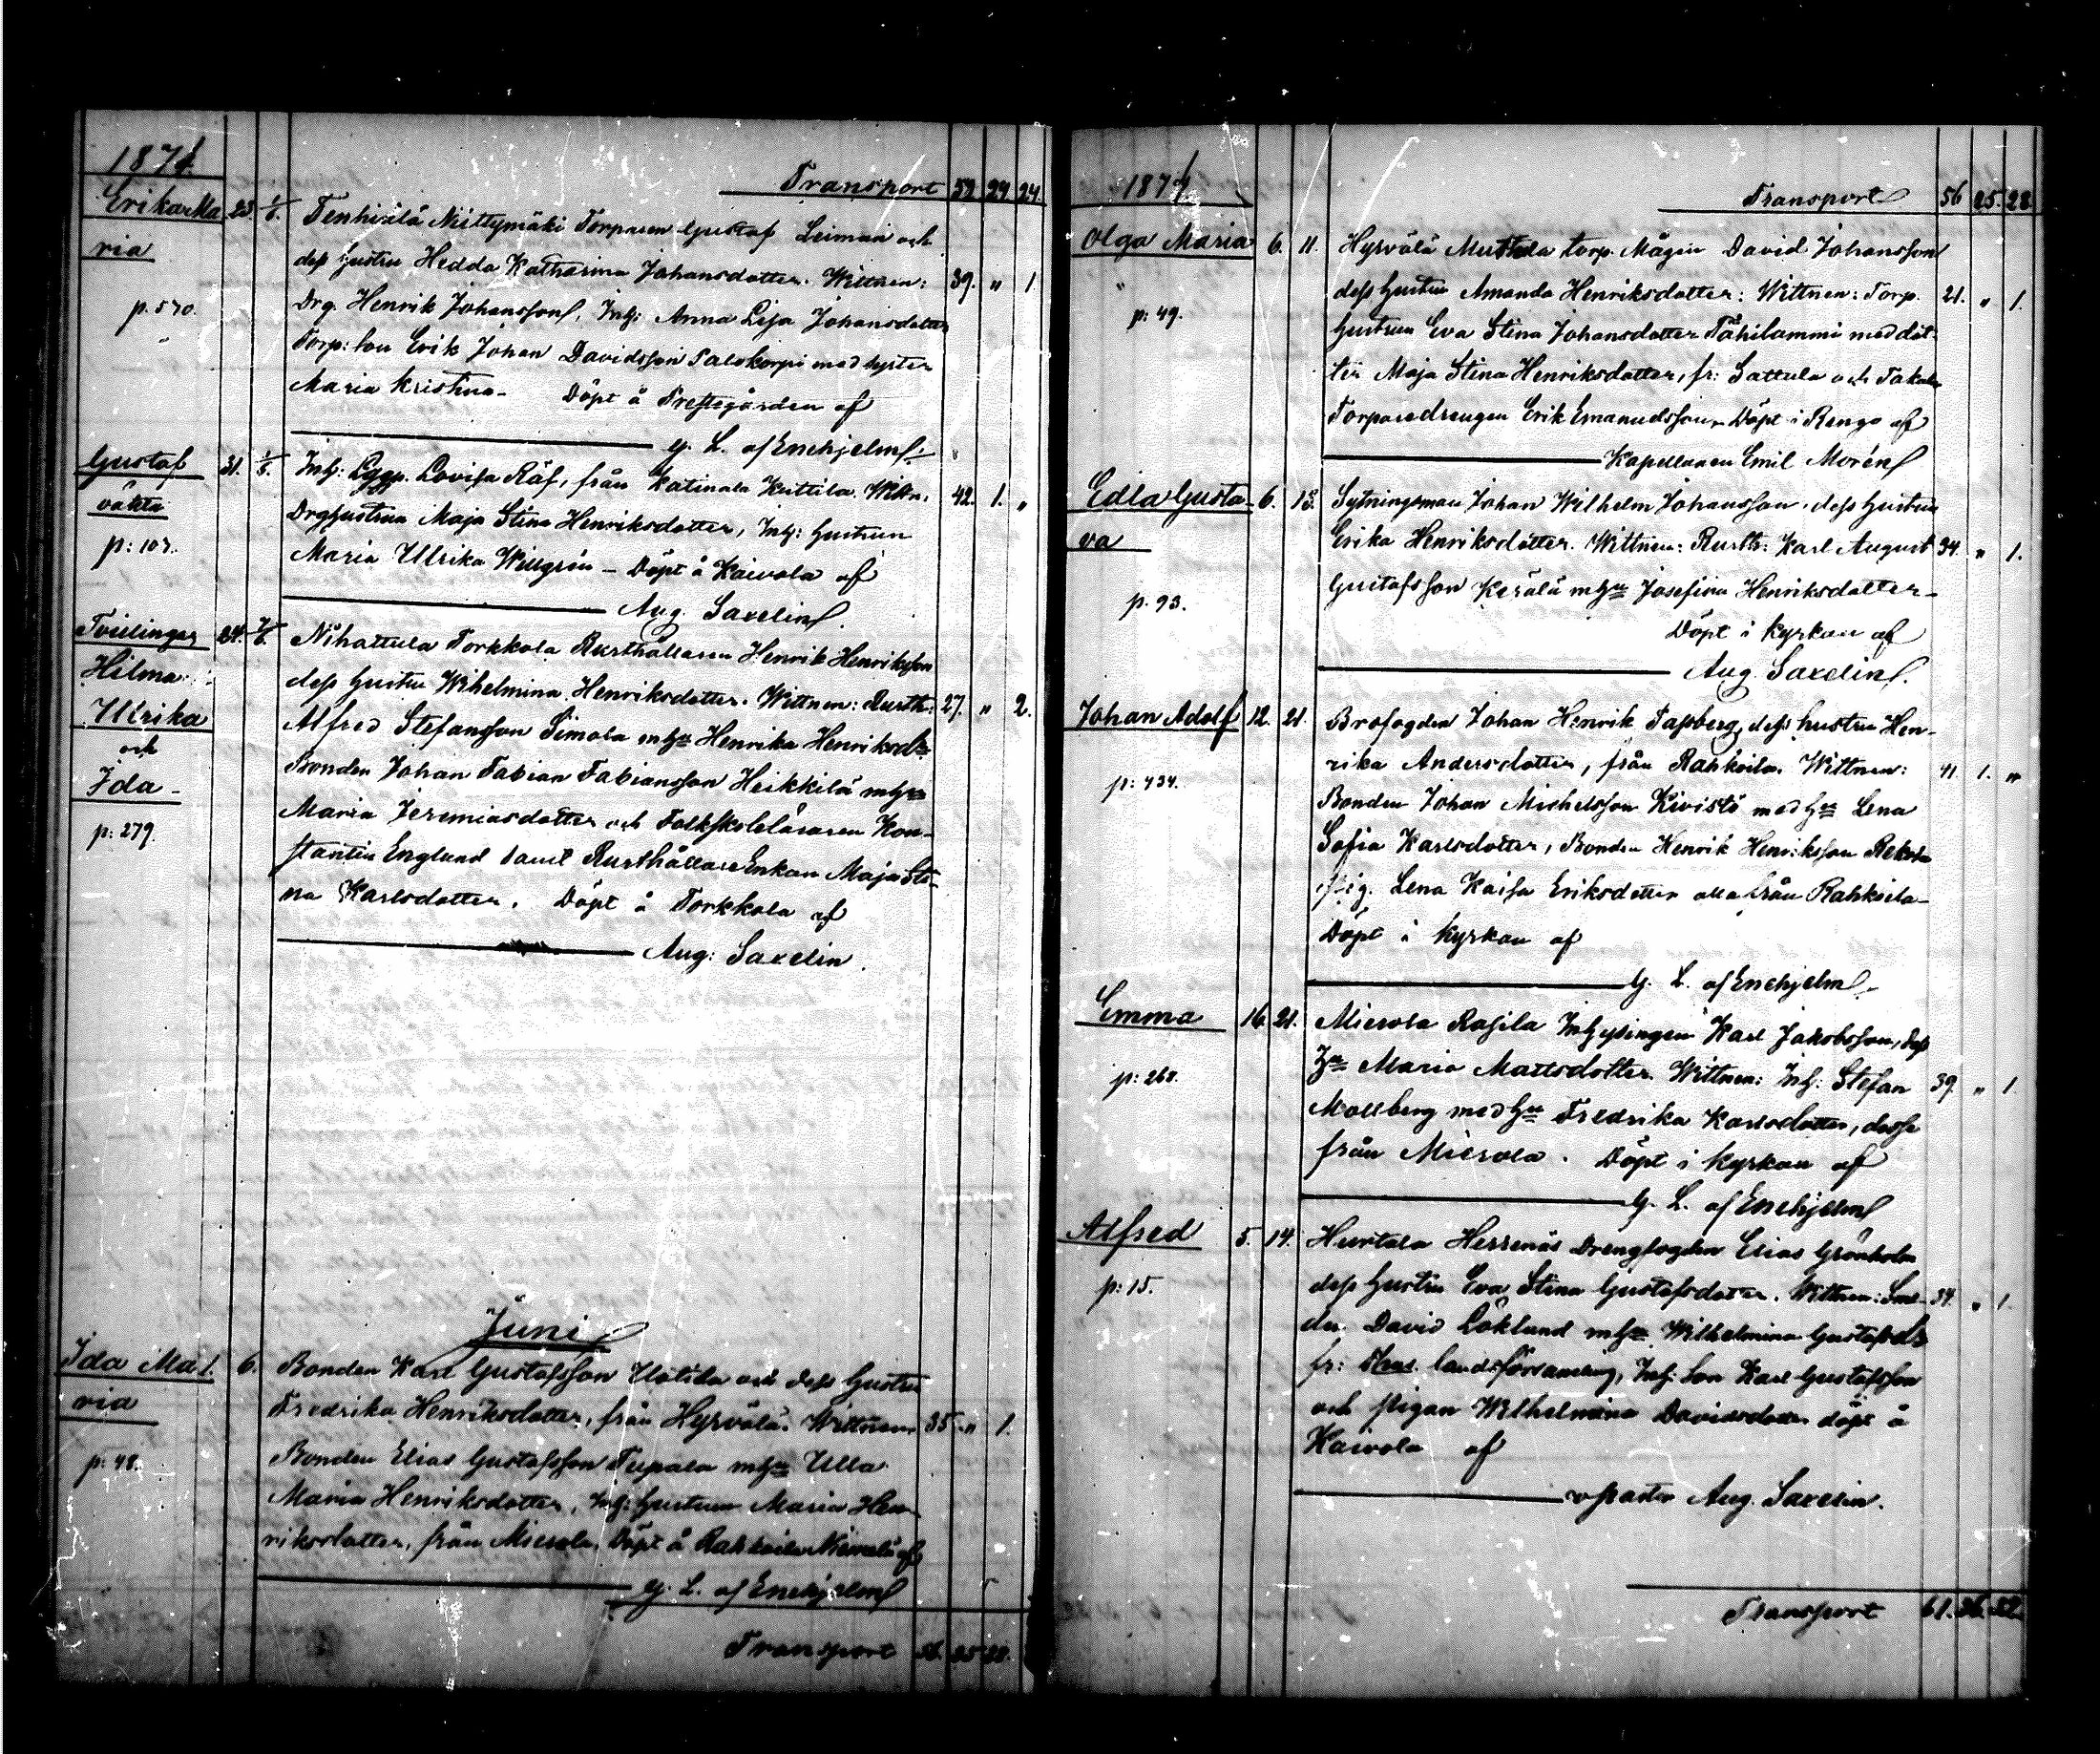 1874.
Transport 52 24 24.
Erika Ma- 23 1/6. Tenhiälä Niittymäki Torparen Gustaf Leiman och
ria
dess hustru Hedda Katharina Johansdotter. Wittnen: 39. " 1
p. 570. Drg. Henrik Johansson, Inh: Anna Lisa Johansdotter
Torp: son Erik Johan Davidsson Talskorpi med syster
Maria Kristina – Döpt å Prestegården af
G. L. af Enehjelm.
Gustaf 31. 1/6. Inh: Lovisa Räf, från Katinala Kuttila. Wittn. 42. 1. "
väkta
Drghustrun Maja Stina Henriksdotter, Inh: hustrun
p: 107. Maria Ulrika Willgrén – Döpt å Kaivola af
Aug. Saxelin.
Tvillingar 24. 7/6. Nihattula Torkkola Rusthållaren Henrik Henriksson
Hilma
dess hustru Wilhelmina Henriksdotter. Wittnen: Rusth: 27. " 2.
Ulrika
Alfred Stefansson Simola mhu Henrika Henriksdr
och
Bonden Johan Fabian Fabiansson Heikkilä mhu
Ida –
Maria Jeremiasdotter och Folkskoleläraren Kon-
p: 279.
stantin Englund samt Rusthållare Enkan Maja Sti-
na Karlsdotter. Döpt å Torkkola af
Aug: Saxelin.
Juni
Ida Ma- 1. 6. Bonden Karl Gustafsson Ylötila och dess hustru
ria
Fredrika Henriksdotter, från Hyrvälä. Wittnen 35. " 1.
p: 48. Bonden Elias Gustafsson Tupala mhu Ulla
Maria Henriksdotter, Inh: hustrun Maria Hen-
riksdotter, från Mierola. Döpt å Rahkoila af
G. L. af Enehjelm
Transport 56. 25 28.
1874
Transport 56 25. 28.
Olga Maria 6. 11. Hyrvälä Mustela torp. Mågen David Johansson
dess hustru Amanda Henriksdotter: Wittnen: Torp. 21. " 1.
p: 49. hustrun Eva Stina Johansdotter Tähilammi med dot-
ter Maja Stina Henriksdotter, fr: Sattula och Takala
Torparedrengen Erik Emanuelsson. Döpt i Rengo af
Kapellanen Emil Morén
Edla Gusta- 6. 15. Sytningsman Johan Wilhelm Johansson, dess hustru
va
Erika Henriksdotter. Wittnen: Rusth: Karl August 34. " 1.
p. 93. Gustafsson Kerälä mhu Josefina Henriksdotter –
Döpt i kyrkan af
Aug. Saxelin.
Johan Adolf 12. 21. Brofogden Johan Henrik Tapberg, dess hustru Hen-
rika Andersdotter, från Rahkoila. Wittnen: 41. 1. "
p: 434. Bonden Johan Michelsson Kivistö med hu Lena
Sofia Karlsdotter, Bonden Henrik Henriksson Rekola
pig. Lena Kaisa Eriksdotter alla från Rahkoila –
Döpt i kyrkan af
G. L. af Enehjelm.
Emma 16. 21. Mierola Rasila Inhysingen Karl Jakobsson, dess
hu Maria Mattsdotter. Wittnen: Inh: Stefan 39. " 1.
p: 268. Mollberg med hu Fredrika Karlsdotter, desse
från Mierola. Döpt i kyrkan af
G. L. af Enehjelm
Alfred 5. 14. Hurtala Herrenäs Drengfogden Elias Grönholm
p: 15. dess hustru Eva Stina Gustafsdotter. Wittnen: Sme- 34. " 1.
den David Löklund mhu Wilhelmina Gustafsdr
fr: landsförsamling, Inh: Son Karl Gustafsson
och pigan Wilhelmina Davidsdotter döpt å
Kaivola af
vpastor Aug. Saxelin.
Transport 61. 26. 32.